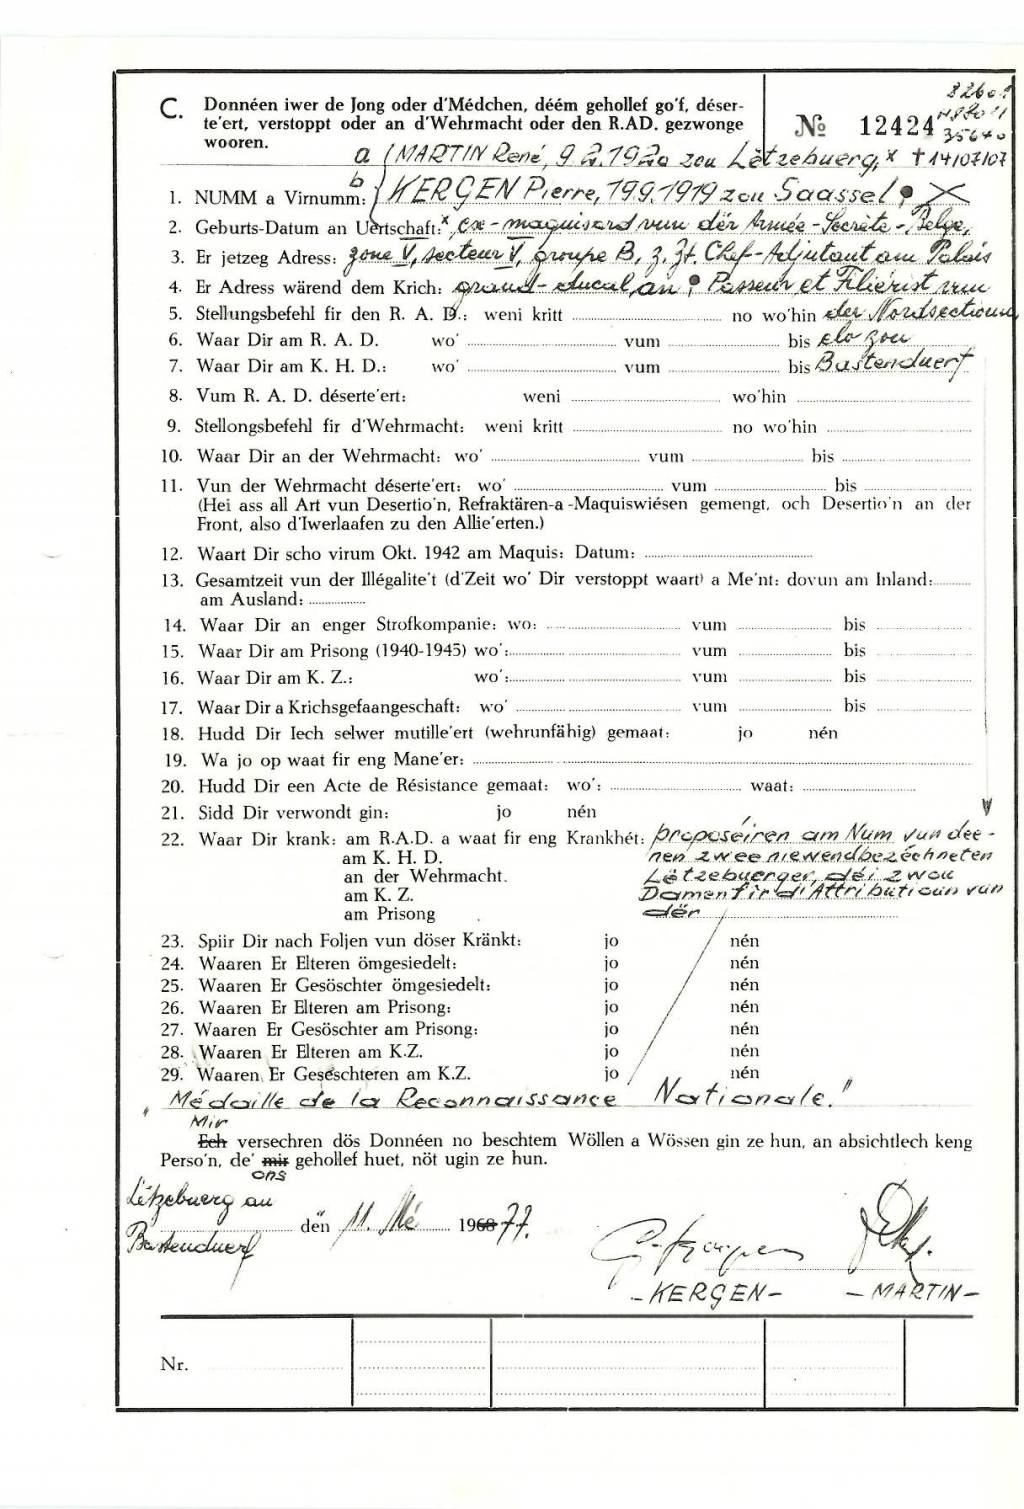 C. Donnéen iwer de Jong oder d'Médchen, déém gehollef go'f, déser-
te'ert, verstoppt oder an d'Wehrmacht oder den R.AD. gezwonge
wooren.
№ 12424
35640
a (MARTIN René, 9.2.1920 zou Lëtzebuerg, x † 14/07/07
1. NUMM a Virnumm: b KERGEN Pierre, 19.9.1919 zou Saassel;
2. Geburts-Datum an Uertschaft: x, ex-maquisard vun dër Armée-Secrète-Belge,
3. Er jetzeg Adress: zone V, secteur V, groupe B, z. Zt. Chef-Adjutant am Palais
4. Er Adress wärend dem Krich: grand-ducal, an; Passeur et Filiérist vun
5. Stellungsbefehl fir den R. A. D.: weni kritt no wo'hin der Nordsectioun,
6. Waar Dir am R. A. D. wo' vum bis elo zou
7. Waar Dir am K. H. D.: wo' vum bis Bastenduerf
8. Vum R. A. D. déserte'ert: weni wo'hin
9. Stellongsbefehl fir d'Wehrmacht: weni kritt no wo'hin
10. Waar Dir an der Wehrmacht: wo' vum bis
11. Vun der Wehrmacht déserte'ert: wo' vum bis
(Hei ass all Art vun Desertio'n, Refraktären-a-Maquiswiésen gemengt, och Desertio'n an der
Front, also d'Iwerlaafen zu den Allie'erten.)
12. Waart Dir scho virum Okt. 1942 am Maquis: Datum:
13. Gesamtzeit vun der Illégalite't (d'Zeit wo' Dir verstoppt waart) a Me'nt: dovun am Inland:
am Ausland:
14. Waar Dir an enger Strofkompanie: wo: vum bis
15. Waar Dir am Prisong (1940-1945) wo': vum bis
16. Waar Dir am K. Z.: wo': vum bis
17. Waar Dir a Krichsgefaangeschaft: wo' vum bis
18. Hudd Dir Iech selwer mutille'ert (wehrunfähig) gemaat: jo nén
19. Wa jo op waat fir eng Mane'er:
20. Hudd Dir een Acte de Résistance gemaat: wo': waat:
21. Sidd Dir verwondt gin: jo nén
22. Waar Dir krank: am R.A.D. a waat fir eng Krankhét: proposéiren am Num vun dee-
am K. H. D. nen zwee niewendbezéchneten
an der Wehrmacht. Lëtzebuerger, déi zwou
am K. Z. Damen fir d'Attributioun vun
am Prisong dër
23. Spiir Dir nach Foljen vun döser Kränkt: jo nén
24. Waaren Er Elteren ömgesiedelt: jo nén
25. Waaren Er Gesöschter ömgesiedelt: jo nén
26. Waaren Er Elteren am Prisong: jo nén
27. Waaren Er Gesöschter am Prisong: jo nén
28. Waaren Er Elteren am K.Z. jo nén
29. Waaren Er Geséschteren am K.Z. jo nén
„ Médaille de la Reconnaissance Nationale."
Mir
Ech versechren dös Donnéen no beschtem Wöllen a Wössen gin ze hun, an absichtlech keng
Perso'n, de' mir gehollef huet, nöt ugin ze hun.
ons
Lëtzebuerg an
Bastenduerf den 11. Mé 196877.
-KERGEN- -MARTIN-
Nr.